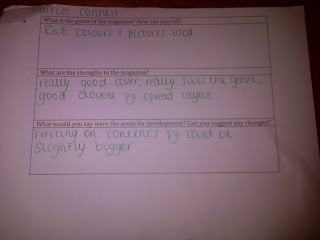 Harriet Connell
What is the genre of the magazine? How can you tell?
RnB, colours + pictures used
What are the strengths to the magazine?
really good cover, really suits the genre,
good double pg spread layout
What would you say were the areas for development? Can you suggest any changes?
Writing on contents pg could be
slightly bigger